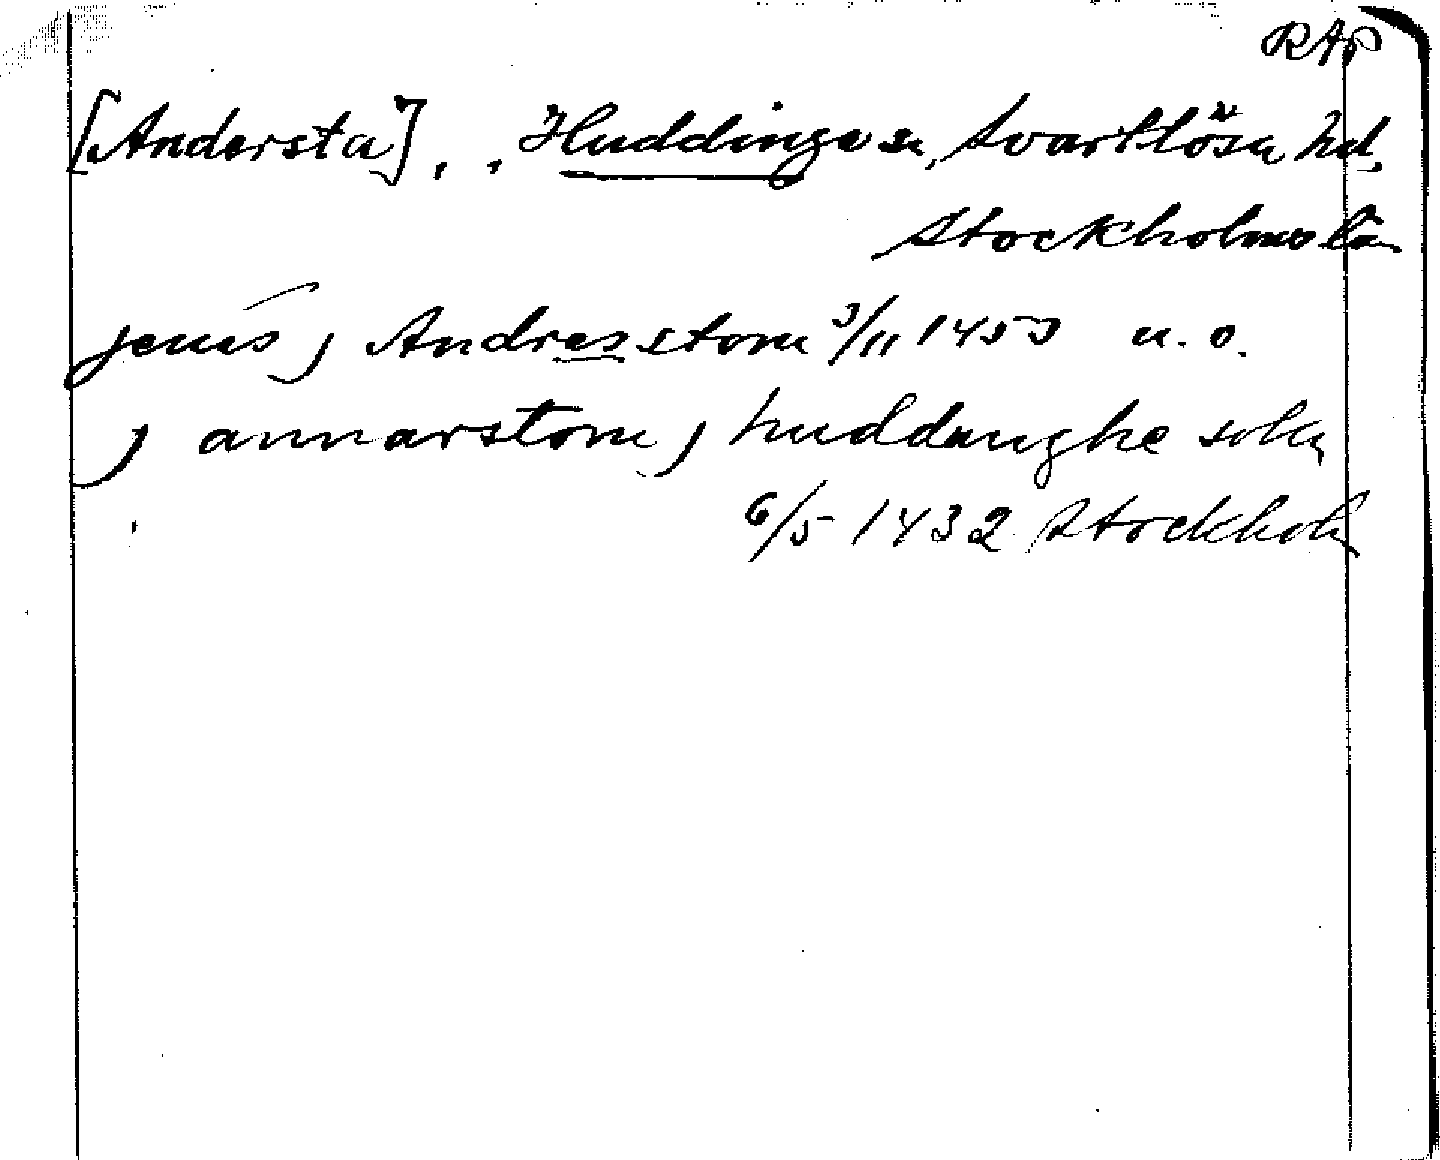 RAP
[Andersta], , Huddinge sn, Svartlösa hd.
Stockholms län
jenis j Andresstom 3/11 1453 u. o.
j annarstom j huddunghe sokn
6/5 1432 Stockholm